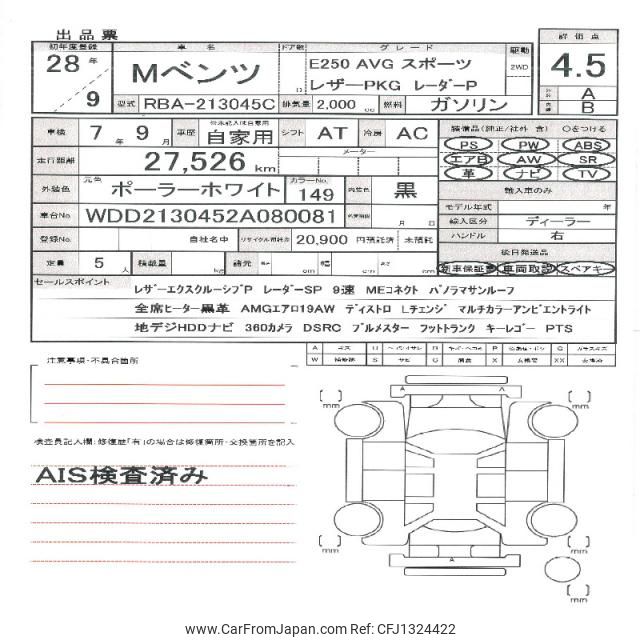 出品票
初年度登録 車名 ドア数 グレード 駆動 評価点
28年 9 Mベンツ D E250 AVG スポーツ 2WD 4.5
レザーPKG レーダーP
型式 RBA-213045C 排気量 2,000 cc 燃料 ガソリン
A
B
車検 7年 9月 車歴 自家用 シフト AT 冷房 AC
装備品(純正/社外 含) ○をつける
PS PW ABS
エアB AW SR
革 ナビ TV
走行距離 27,526 km メーター
外装色 元色 ポーラーホワイト カラーNo. 149 内装色 黒
輸入車のみ
モデル年式 年
車台No. WDD2130452A080081 月 日
輸入区分 ディーラー
ハンドル 右
登録No. 自社名中 リサイクル預託金 20,900 円預託済 未預託
後日発送品
定員 5人 積載量 kg 諸元 長さ cm 幅 cm 高さ cm
新車保証書 車両取説 スペアキー
セールスポイント
レザーエクスクルーシブP レーダーSP 9速 MEコネクト パノラマサンルーフ
全席ヒーター黒革 AMGエアロ19AW ディストロ Lチェンジ マルチカラーアンビエントライト
地デジHDDナビ 360カメラ DSRC ブルメスター フットトランク キーレゴー PTS
注意事項・不具合箇所
検査員記入欄:修復歴「有」の場合は修復箇所・交換箇所を記入
AIS検査済み
mm mm
A
A
mm mm
mm
www.CarFromJapan.com Ref: CFJ1324422